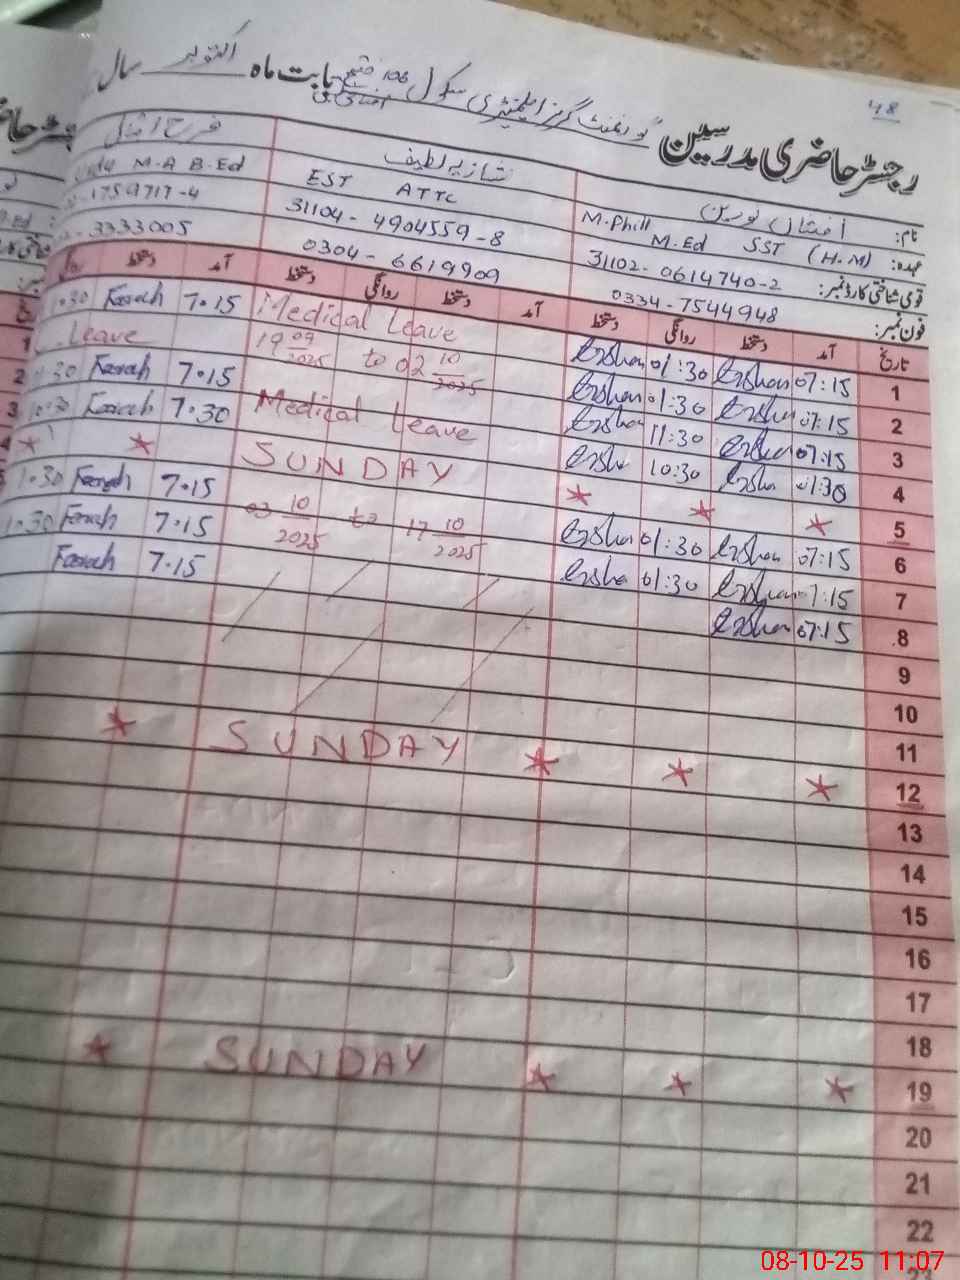 48
رجسٹر حاضری مدرسین گورنمنٹ گرلز ایلیمنٹری سکول 106 فتح بابت ماہ اکتوبر سال
نام: افشاں نورین شازیہ لطیف فرح افضل
عہدہ: M.Phill M.Ed SST (H.M) EST ATTC M.A B.Ed
قومی شناختی کارڈ نمبر: 31102-0614740-2 31104-4904559-8 1759717-4
فون نمبر: 0334-7544948 0304-6619909 3333005
تاریخ آمد دستخط روانگی دستخط آمد دستخط روانگی دستخط آمد دستخط
1 07:15 01:30 Medical Leave 7.15 Farah 1.30
2 07:15 01:30 19 09/2025 to 02 10/2025 Leave
3 07:15 11:30 Medical Leave 7.15 Farah
4 01:30 10:30 7.30 Farah
5 SUNDAY
6 07:15 01:30 03 10/2025 to 17 10/2025 7.15 Farah 1.30
7 7:15 01:30 7.15 Farah 1.30
8 07:15 7.15 Farah
9
10
11
12 SUNDAY
13
14
15
16
17
18
19 SUNDAY
20
21
22
23
08-10-25 11:07